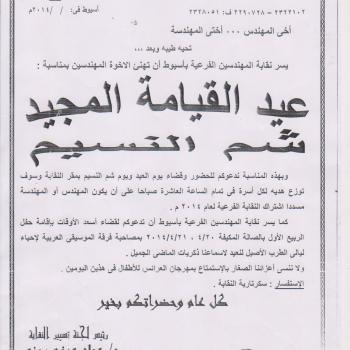 ٢٣٢٢١٠٢ – ٢٢٩٠٧٢٨ ف: ٢٣٢٨٠٥١
أسيوط فى / /٢٠١٤م
أخى المهندس ... أختى المهندسة
تحيه طيبه وبعد ...
يسر نقابة المهندسين الفرعية بأسيوط أن تهنئ الاخوة المهندسين بمناسبة :
عيد القيامة المجيد
شم النسيم
وبهذه المناسبة ندعوكم للحضور وقضاء يوم العيد ويوم شم النسيم بمقر النقابة وسوف
توزع هديه لكل أسرة فى تمام الساعة العاشرة صباحا على أن يكون المهندس أو المهندسة
مسددا اشتراك النقابة الفرعية لعام ٢٠١٤ م .
كما يسر نقابة المهندسين الفرعية بأسيوط أن تدعوكم لقضاء أسعد الأوقات بإقامة حفل
الربيع الأول بالصالة المكيفة ٤/٢٠ ، ٢٠١٤/٤/٢١ بمصاحبة فرقة الموسيقى العربية لإحياء
ليالى الطرب الأصيل لنعيد لاسماعنا ذكريات الماضى الجميل .
ولا ننسى أعزائنا الصغار بالإستمتاع بمهرجان العرائس للأطفال فى هذين اليومين .
الإستفسار : سكرتارية النقابة .
كل عام وحضراتكم بخير
رئيس لجنة تسيير النقابة